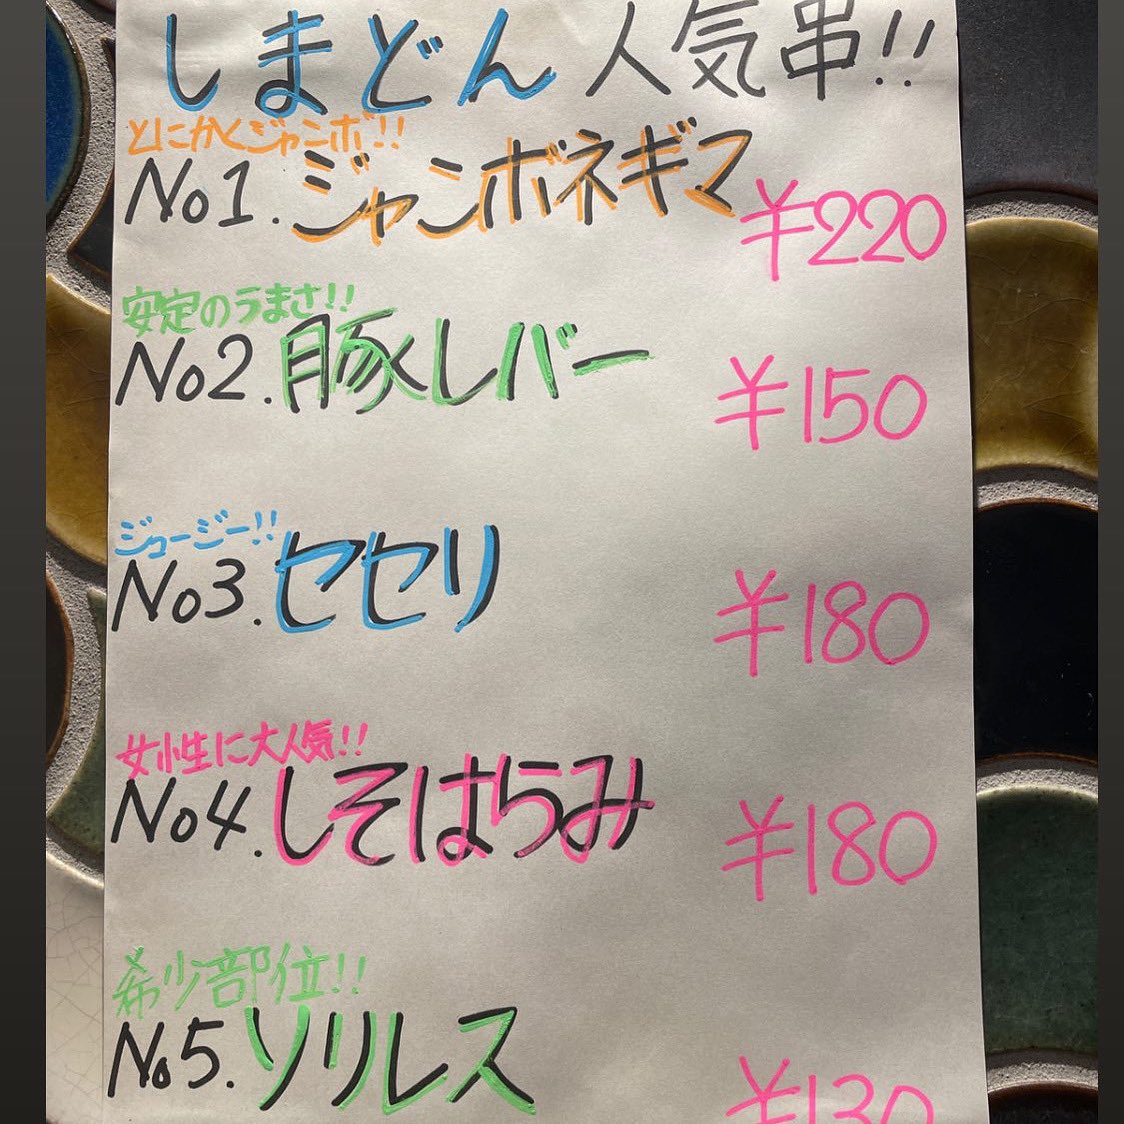 しまどん 人気串!!
とにかくジャンボ!!
No1. ジャンボネギマ ¥220
安定のうまさ!!
No2. 豚くレバー ¥150
ジューシー!!
No3. セセリ ¥180
女性に大人気!!
No4. しそはらみ ¥180
希少部位!!
No5. ソリレス ¥130